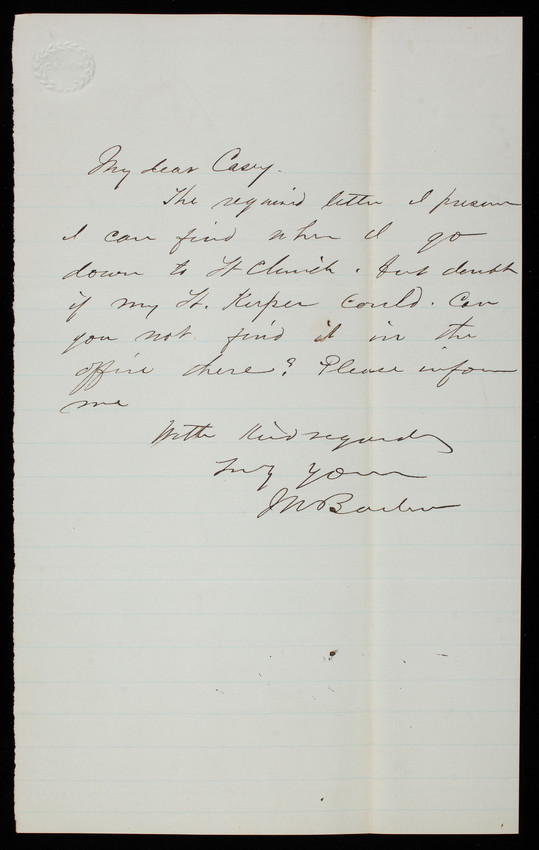 My dear Casey.
The required letter I presume
I can find when I go
down to St Clinich. but doubt
if my Lt. Kerper could. Can
you not find it in the
office there? Please inform
me
With kind regards
Truly Yours
JWBarlow